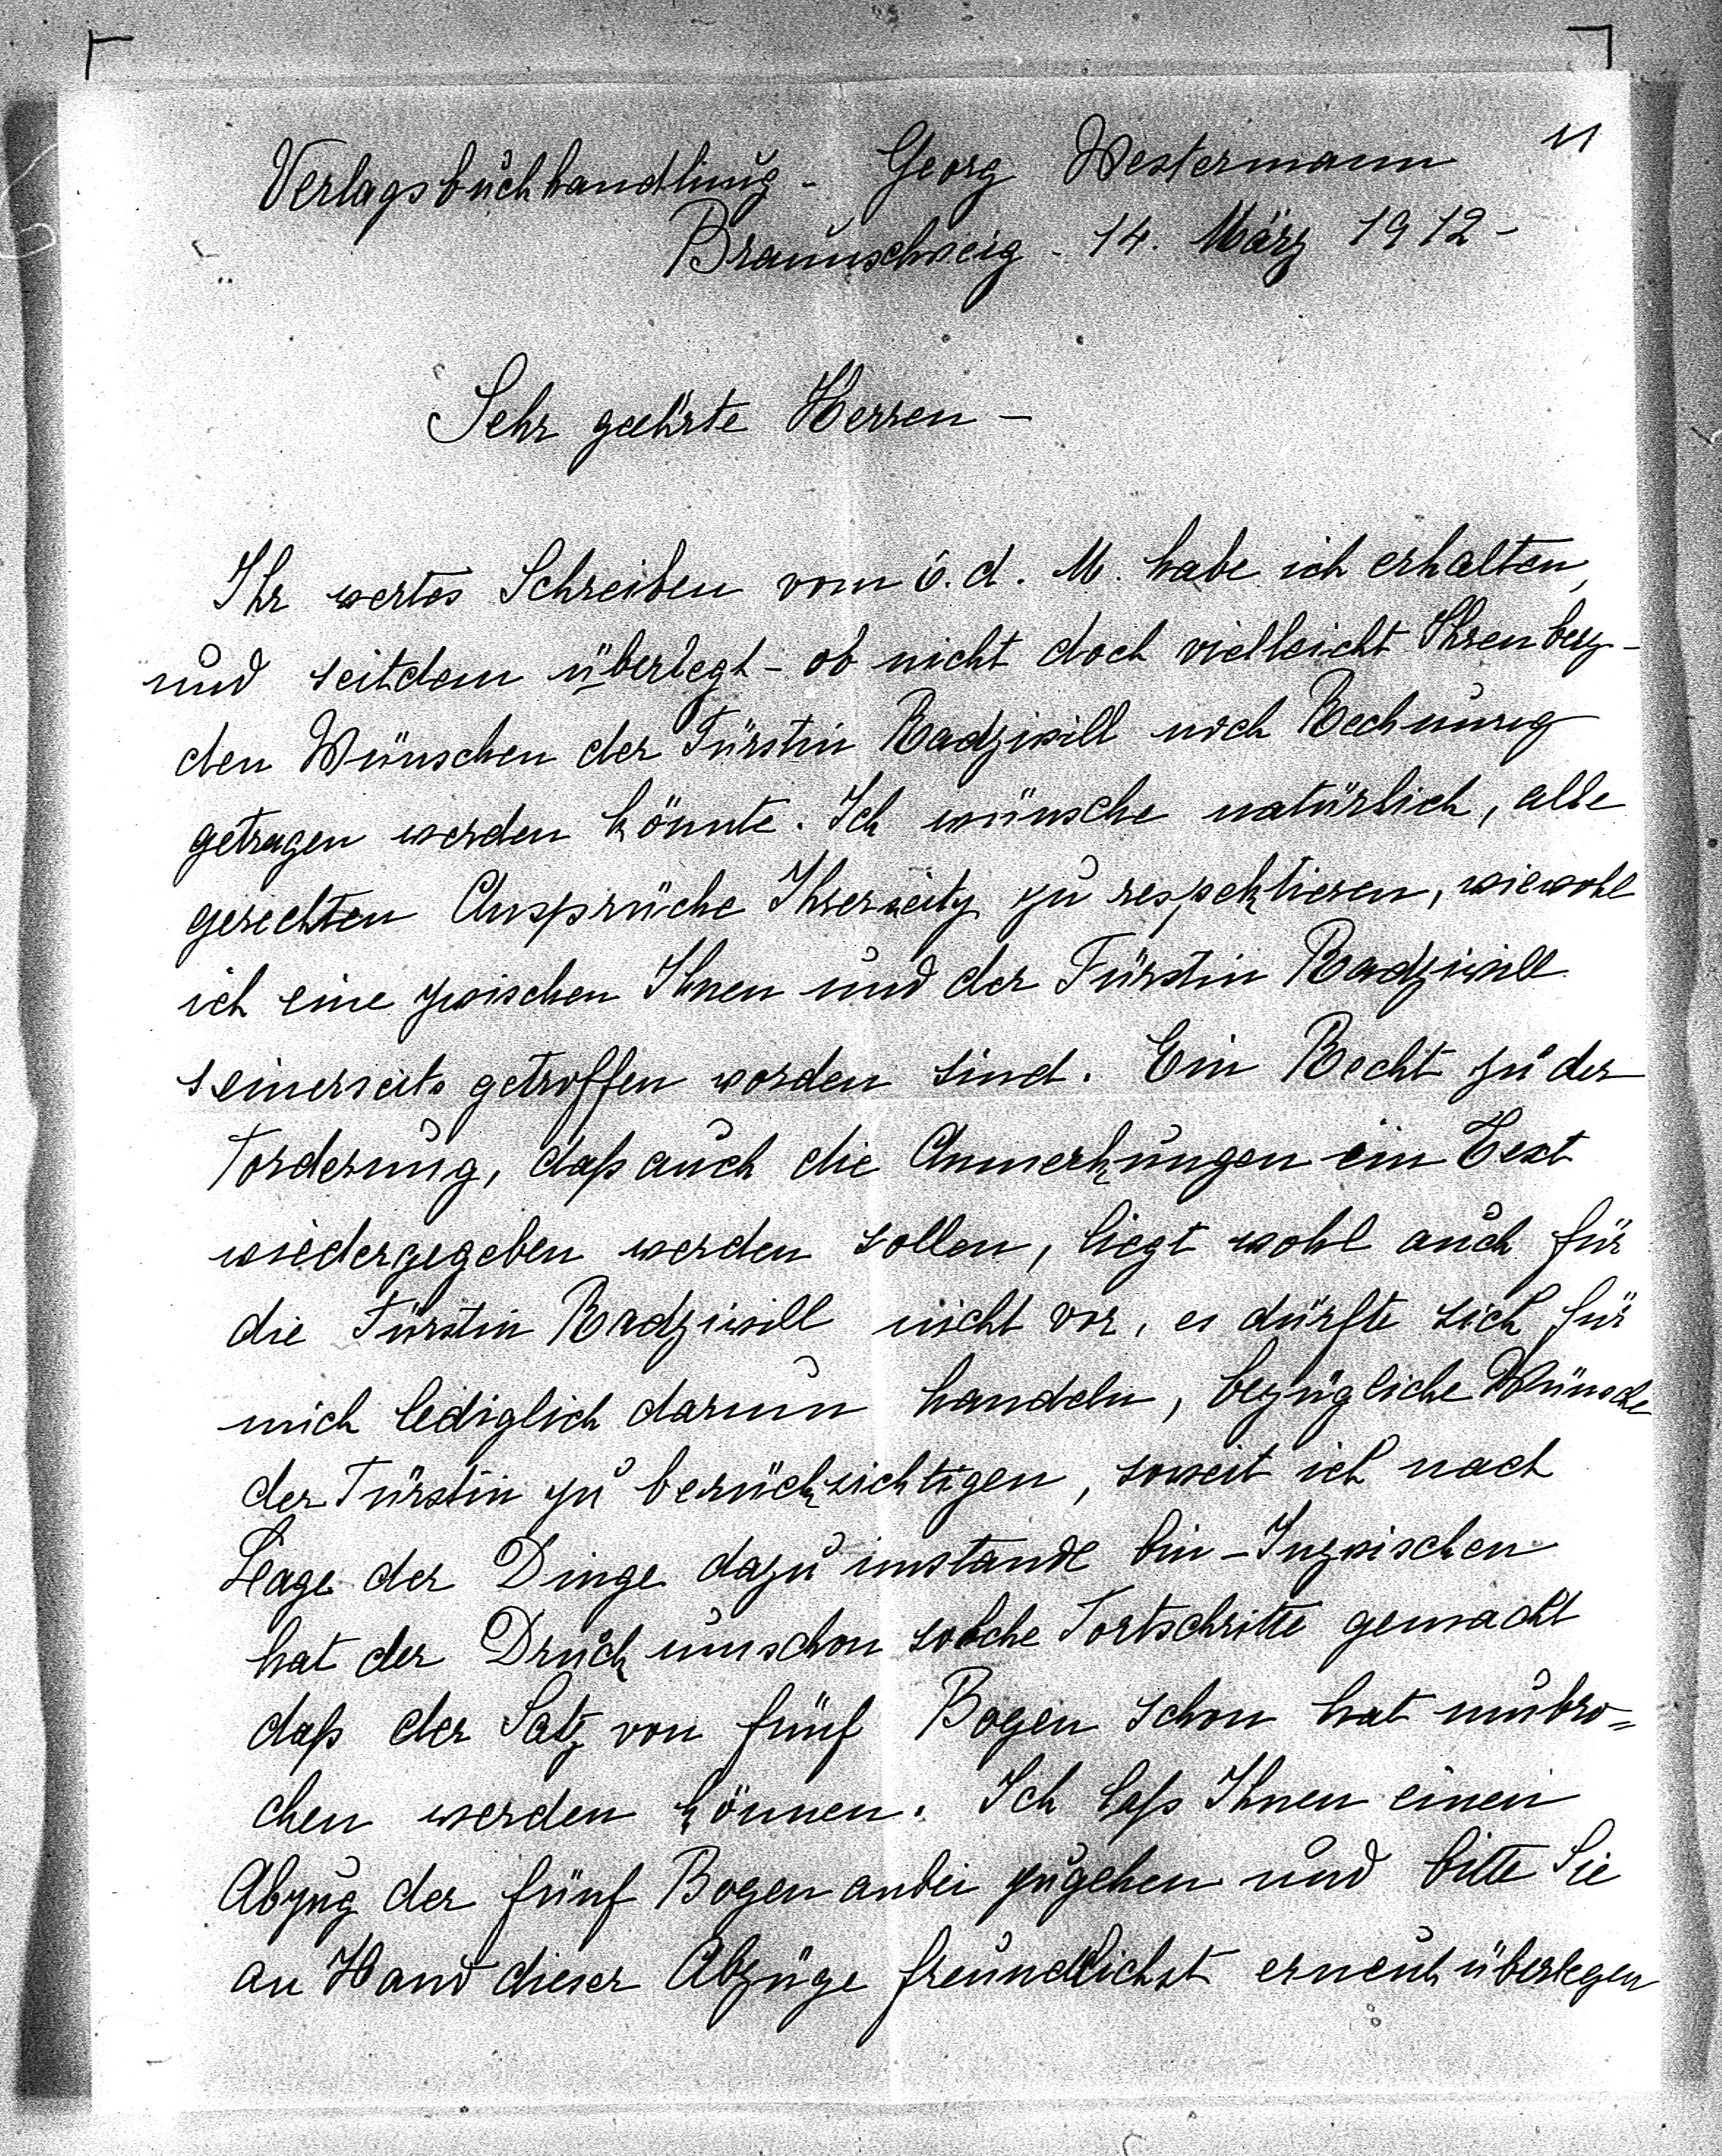 11
Verlagsbuchhandlung - Georg Westermann
Braunschweig - 14. März 1912 -
Sehr geehrte Herren -
Ihr wertes Schreiben vom 6. d. M. habe ich erhalten,
und seitdem überlegt - ob nicht doch vielleicht Ihren bezw-
den Wünschen der Fürstin Radziwill noch Rechnung
getragen werden könnte. Ich wünsche natürlich, alle
gerechten Ansprüche Ihrerseits zu respektieren, wiewohl
ich eine zwischen Ihnen und der Fürstin Radziwill
seinerseits getroffen worden sind. Ein Recht zu der
Forderung, daß auch die Anmerkungen ein Text
wiedergegeben werden sollen, liegt wohl auch für
die Fürstin Radziwill nicht vor, es dürfte sich für
mich lediglich darum handeln, bezügliche Wünsche
der Fürstin zu berücksichtigen, soweit ich nach
Lage der Dinge dazu imstande bin - Inzwischen
hat der Druck nun schon solche Fortschritte gemacht
daß der Satz von fünf Bogen schon hat umbro=
chen werden können. Ich laß Ihnen einen
Abzug der fünf Bogen anbei zugehen und bitte Sie
an Hand dieser Abzüge freundlichst erneut überlegen